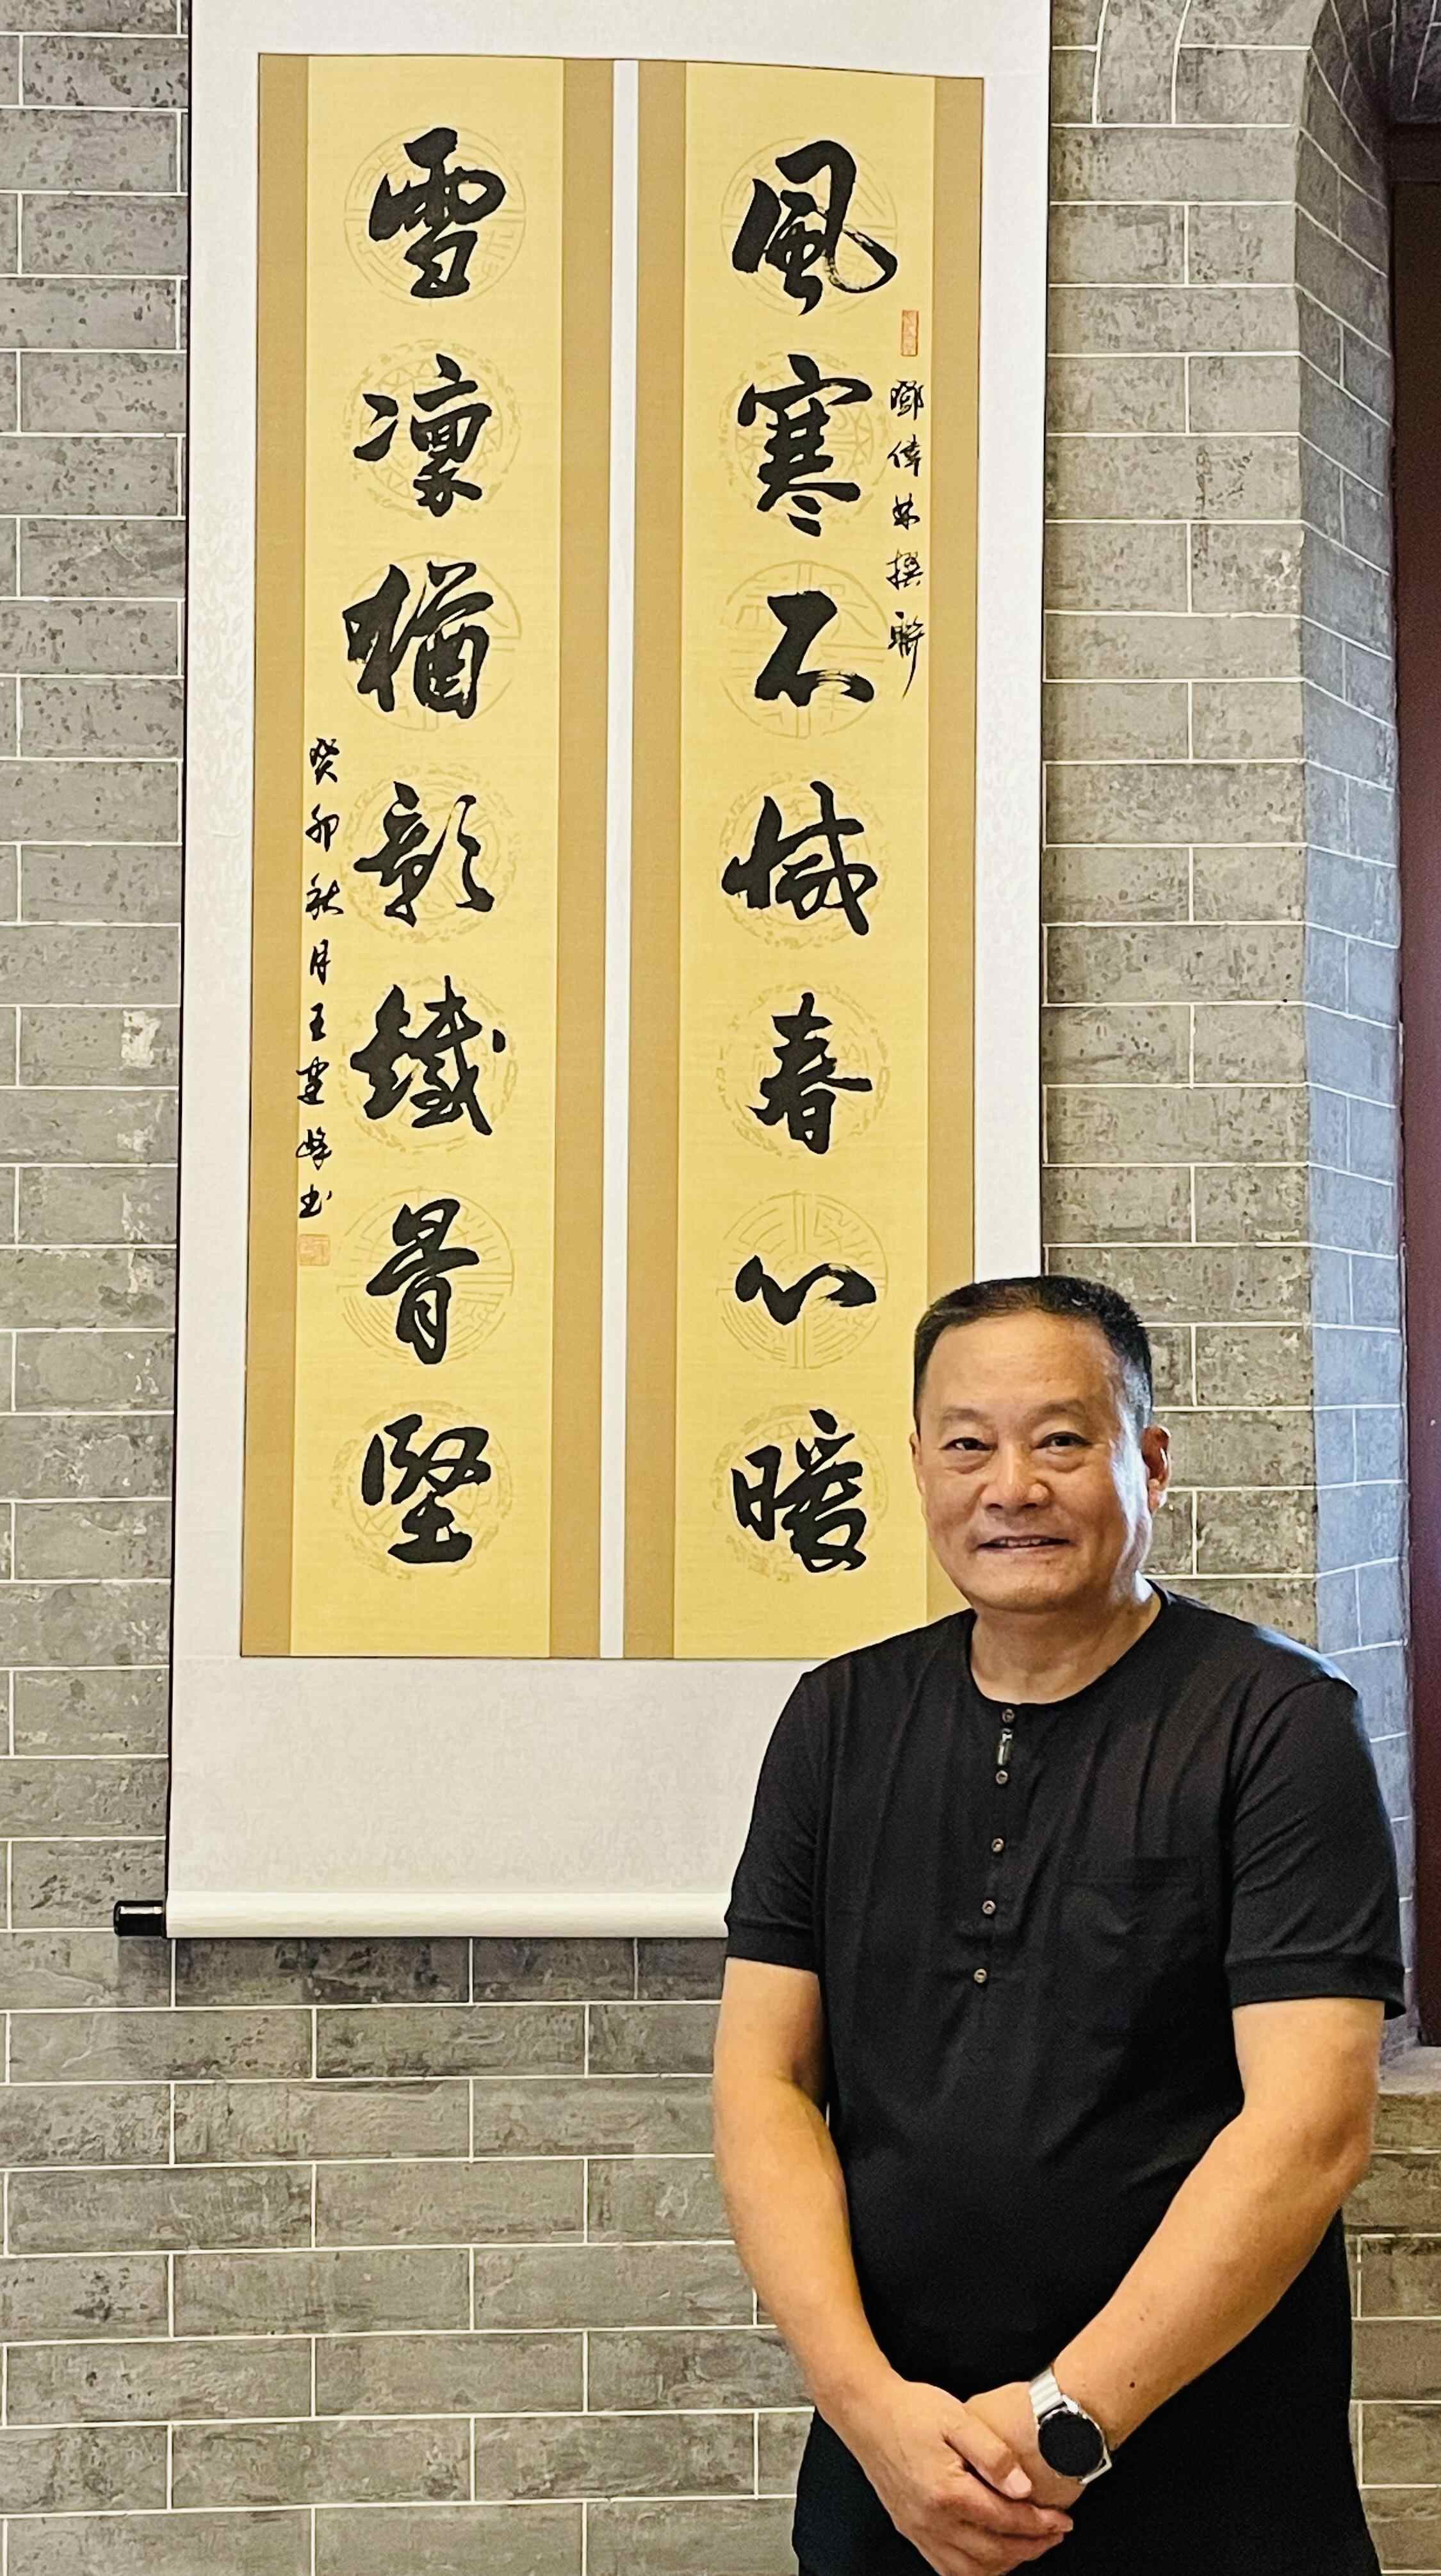 風寒不減春心暖
鄧偉雄撰聯
雪凜猶彰鐵骨堅
癸卯秋月王建峰書